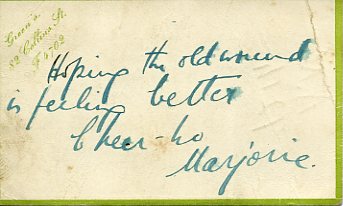 Green's
82 Collins St.
F 4762
Hoping the old wound
is feeling better
Cheer-ho
Marjorie.